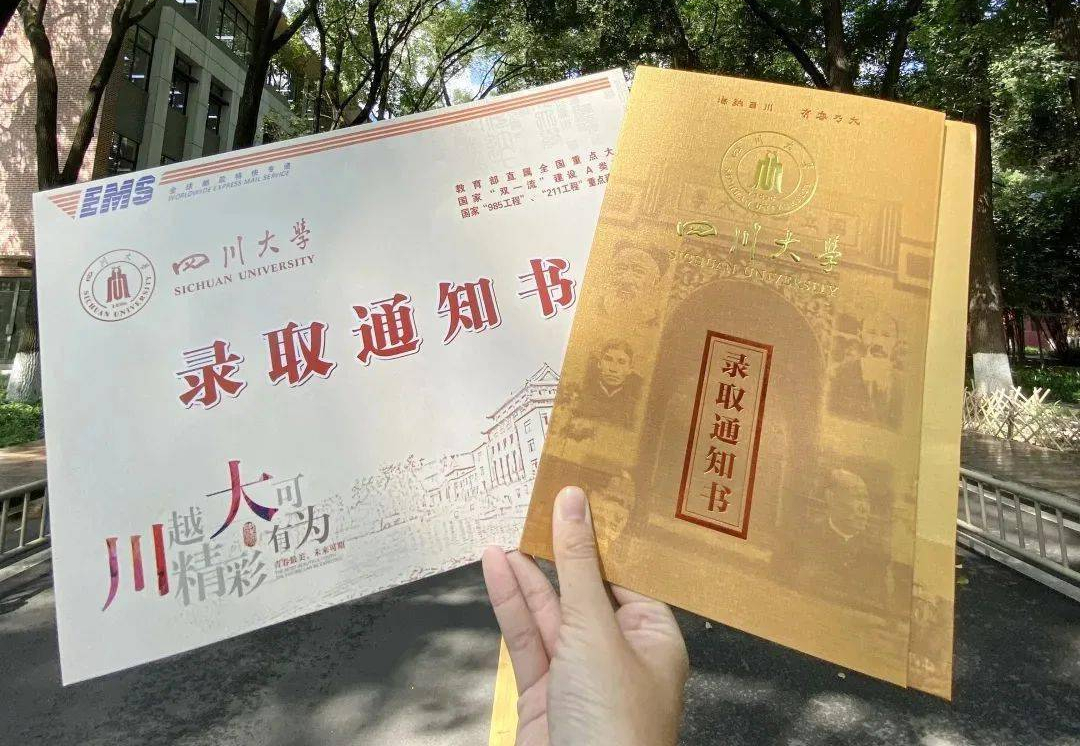 EMS
全球邮政特快专递
WORLDWIDE EXPRESS MAIL SERVICE
教育部直属全国重点大
国家“双一流”建设A类
国家“985工程”、“211工程”重点
四川大學
SICHUAN UNIVERSITY
四川大學
SICHUAN UNIVERSITY
1896
录取通知书
川越
精彩
大可
有为
青春最美、未来可期
海納百川 有容乃大
四川大學
SICHUAN UNIVERSITY
四川大學
SICHUAN UNIVERSITY
录取通知书